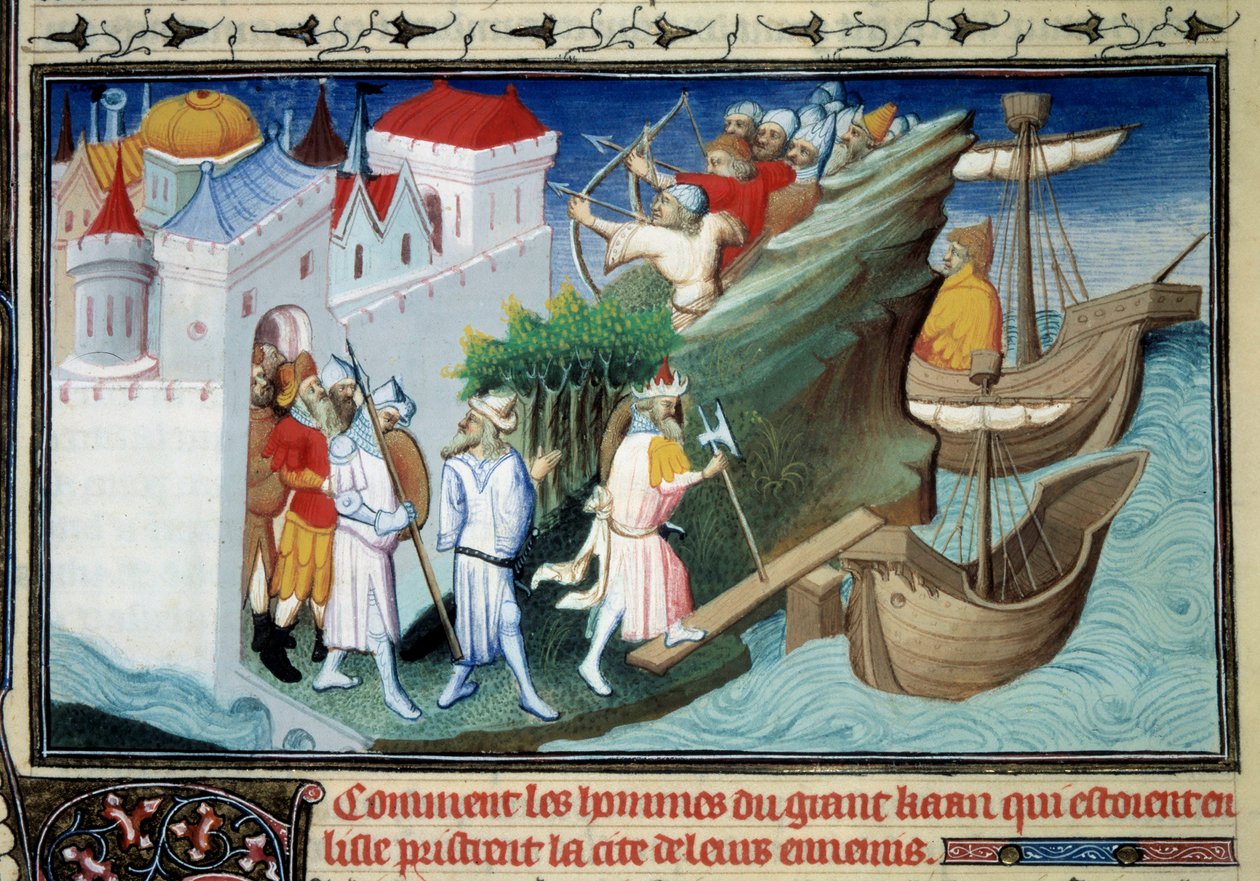 Comment les hommes du grant kaan qui estoient en
lisle pristrent la cite de leurs ennemis.